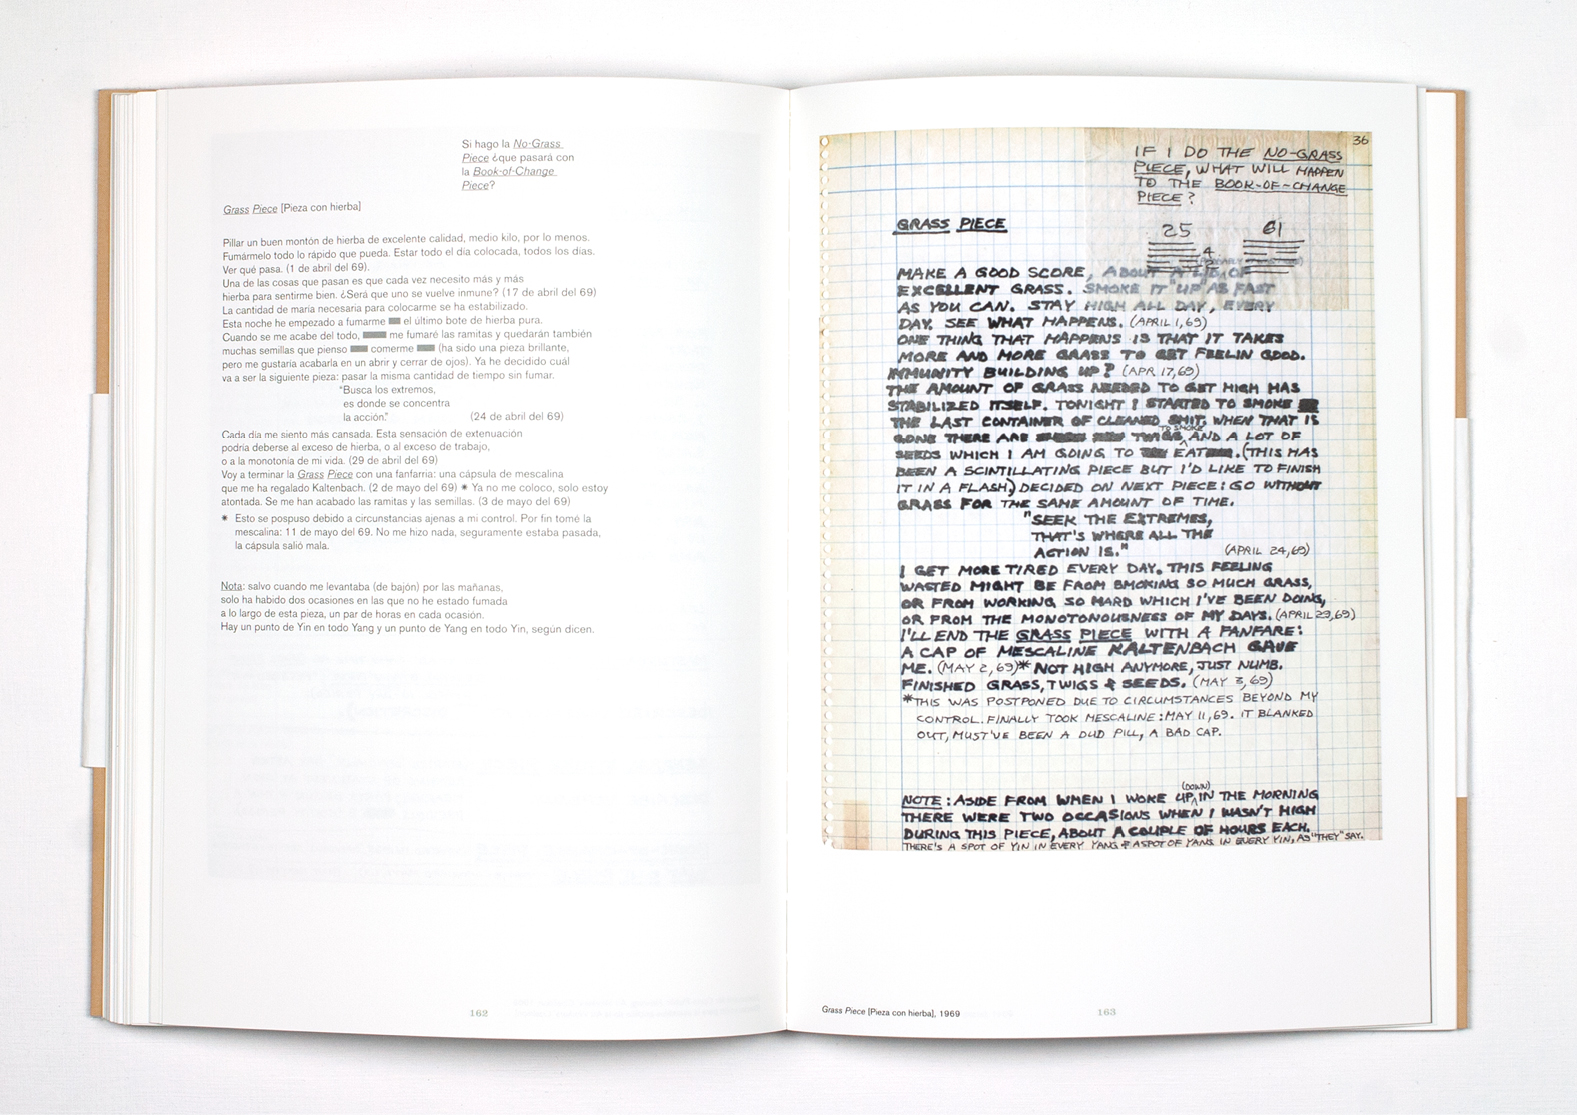 Si hago la No-Grass
Piece ¿que pasará con
la Book-of-Change
Piece?
Grass Piece [Pieza con hierba]
Pillar un buen montón de hierba de excelente calidad, medio kilo, por lo menos.
Fumármelo todo lo rápido que pueda. Estar todo el día colocada, todos los días.
Ver qué pasa. (1 de abril del 69).
Una de las cosas que pasan es que cada vez necesito más y más
hierba para sentirme bien. ¿Será que uno se vuelve inmune? (17 de abril del 69)
La cantidad de maría necesaria para colocarme se ha estabilizado.
Esta noche he empezado a fumarme el último bote de hierba pura.
Cuando se me acabe del todo, me fumaré las ramitas y quedarán también
muchas semillas que pienso comerme (ha sido una pieza brillante,
pero me gustaría acabarla en un abrir y cerrar de ojos). Ya he decidido cuál
va a ser la siguiente pieza: pasar la misma cantidad de tiempo sin fumar.
"Busca los extremos,
es donde se concentra
la acción." (24 de abril del 69)
Cada día me siento más cansada. Esta sensación de extenuación
podría deberse al exceso de hierba, o al exceso de trabajo,
o a la monotonía de mi vida. (29 de abril del 69)
Voy a terminar la Grass Piece con una fanfarria: una cápsula de mescalina
que me ha regalado Kaltenbach. (2 de mayo del 69) * Ya no me coloco, solo estoy
atontada. Se me han acabado las ramitas y las semillas. (3 de mayo del 69)
* Esto se pospuso debido a circunstancias ajenas a mi control. Por fin tomé la
mescalina: 11 de mayo del 69. No me hizo nada, seguramente estaba pasada,
la cápsula salió mala.
Nota: salvo cuando me levantaba (de bajón) por las mañanas,
solo ha habido dos ocasiones en las que no he estado fumada
a lo largo de esta pieza, un par de horas en cada ocasión.
Hay un punto de Yin en todo Yang y un punto de Yang en todo Yin, según dicen.
162
36
IF I DO THE NO-GRASS
PIECE, WHAT WILL HAPPEN
TO THE BOOK-OF-CHANGE
PIECE?
GRASS PIECE
25 61
4
2
MAKE A GOOD SCORE, ABOUT A LID OF
EXCELLENT GRASS. SMOKE IT "UP" AS FAST
AS YOU CAN. STAY HIGH ALL DAY, EVERY
DAY. SEE WHAT HAPPENS. (APRIL 1,69)
ONE THING THAT HAPPENS IS THAT IT TAKES
MORE AND MORE GRASS TO GET FEELIN GOOD.
IMMUNITY BUILDING UP? (APR 17,69)
THE AMOUNT OF GRASS NEEDED TO GET HIGH HAS
STABILIZED ITSELF. TONIGHT I STARTED TO SMOKE
THE LAST CONTAINER OF CLEANED SHIT. WHEN THAT IS
GONE THERE ARE TWIGS TO SMOKE AND A LOT OF
SEEDS WHICH I AM GOING TO EAT. (THIS HAS
BEEN A SCINTILLATING PIECE BUT I'D LIKE TO FINISH
IT IN A FLASH) DECIDED ON NEXT PIECE: GO WITHOUT
GRASS FOR THE SAME AMOUNT OF TIME.
"SEEK THE EXTREMES,
THAT'S WHERE ALL THE
ACTION IS." (APRIL 24,69)
I GET MORE TIRED EVERY DAY. THIS FEELING
WASTED MIGHT BE FROM SMOKING SO MUCH GRASS,
OR FROM WORKING SO HARD WHICH I'VE BEEN DOING,
OR FROM THE MONOTONOUSNESS OF MY DAYS. (APRIL 29,69)
I'LL END THE GRASS PIECE WITH A FANFARE:
A CAP OF MESCALINE KALTENBACH GAVE
ME. (MAY 2,69)* NOT HIGH ANYMORE, JUST NUMB.
FINISHED GRASS, TWIGS & SEEDS. (MAY 3,69)
*THIS WAS POSTPONED DUE TO CIRCUMSTANCES BEYOND MY
CONTROL. FINALLY TOOK MESCALINE: MAY 11,69. IT BLANKED
OUT, MUST'VE BEEN A DUD PILL, A BAD CAP.
NOTE: ASIDE FROM WHEN I WOKE UP (DOWN) IN THE MORNING
THERE WERE TWO OCCASIONS WHEN I WASN'T HIGH
DURING THIS PIECE, ABOUT A COUPLE OF HOURS EACH.
THERE'S A SPOT OF YIN IN EVERY YANG & A SPOT OF YANG IN EVERY YIN, AS "THEY" SAY.
Grass Piece [Pieza con hierba], 1969
163